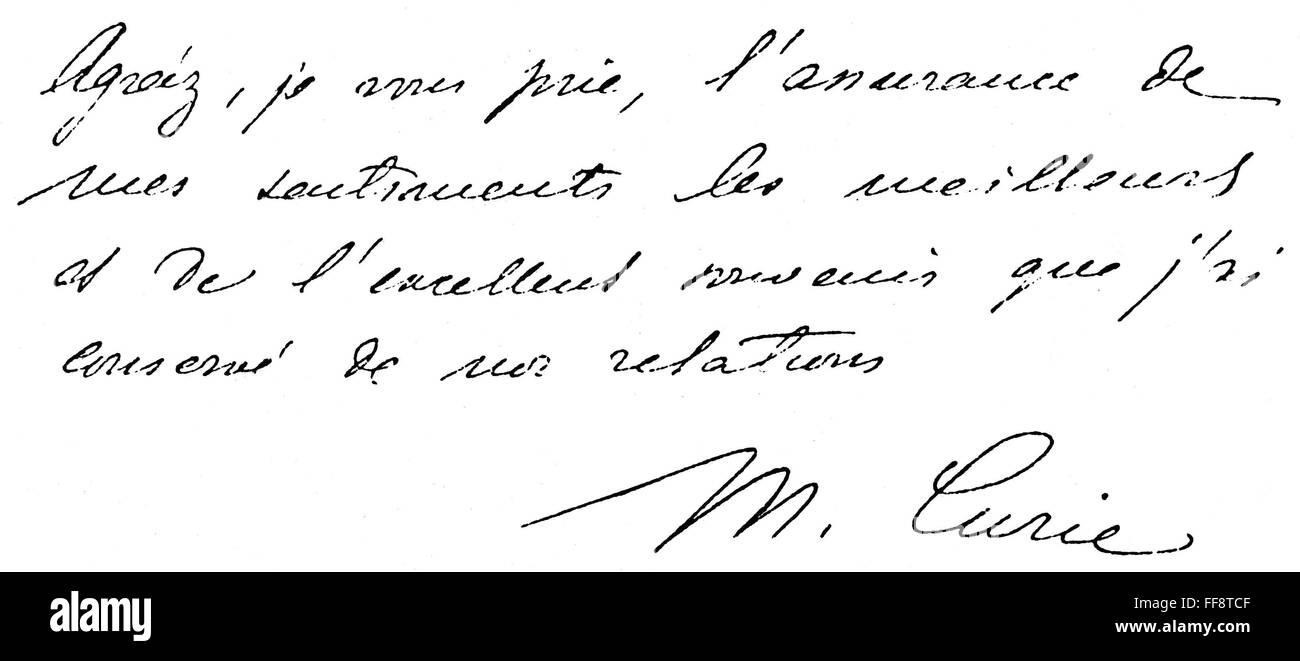 Agréez, je vous prie, l'assurance de
mes sentiments les meilleurs
et de l'excellent souvenir que j'ai
conservé de nos relations
M. Curie
alamy
Image ID: FF8TCF
www.alamy.com